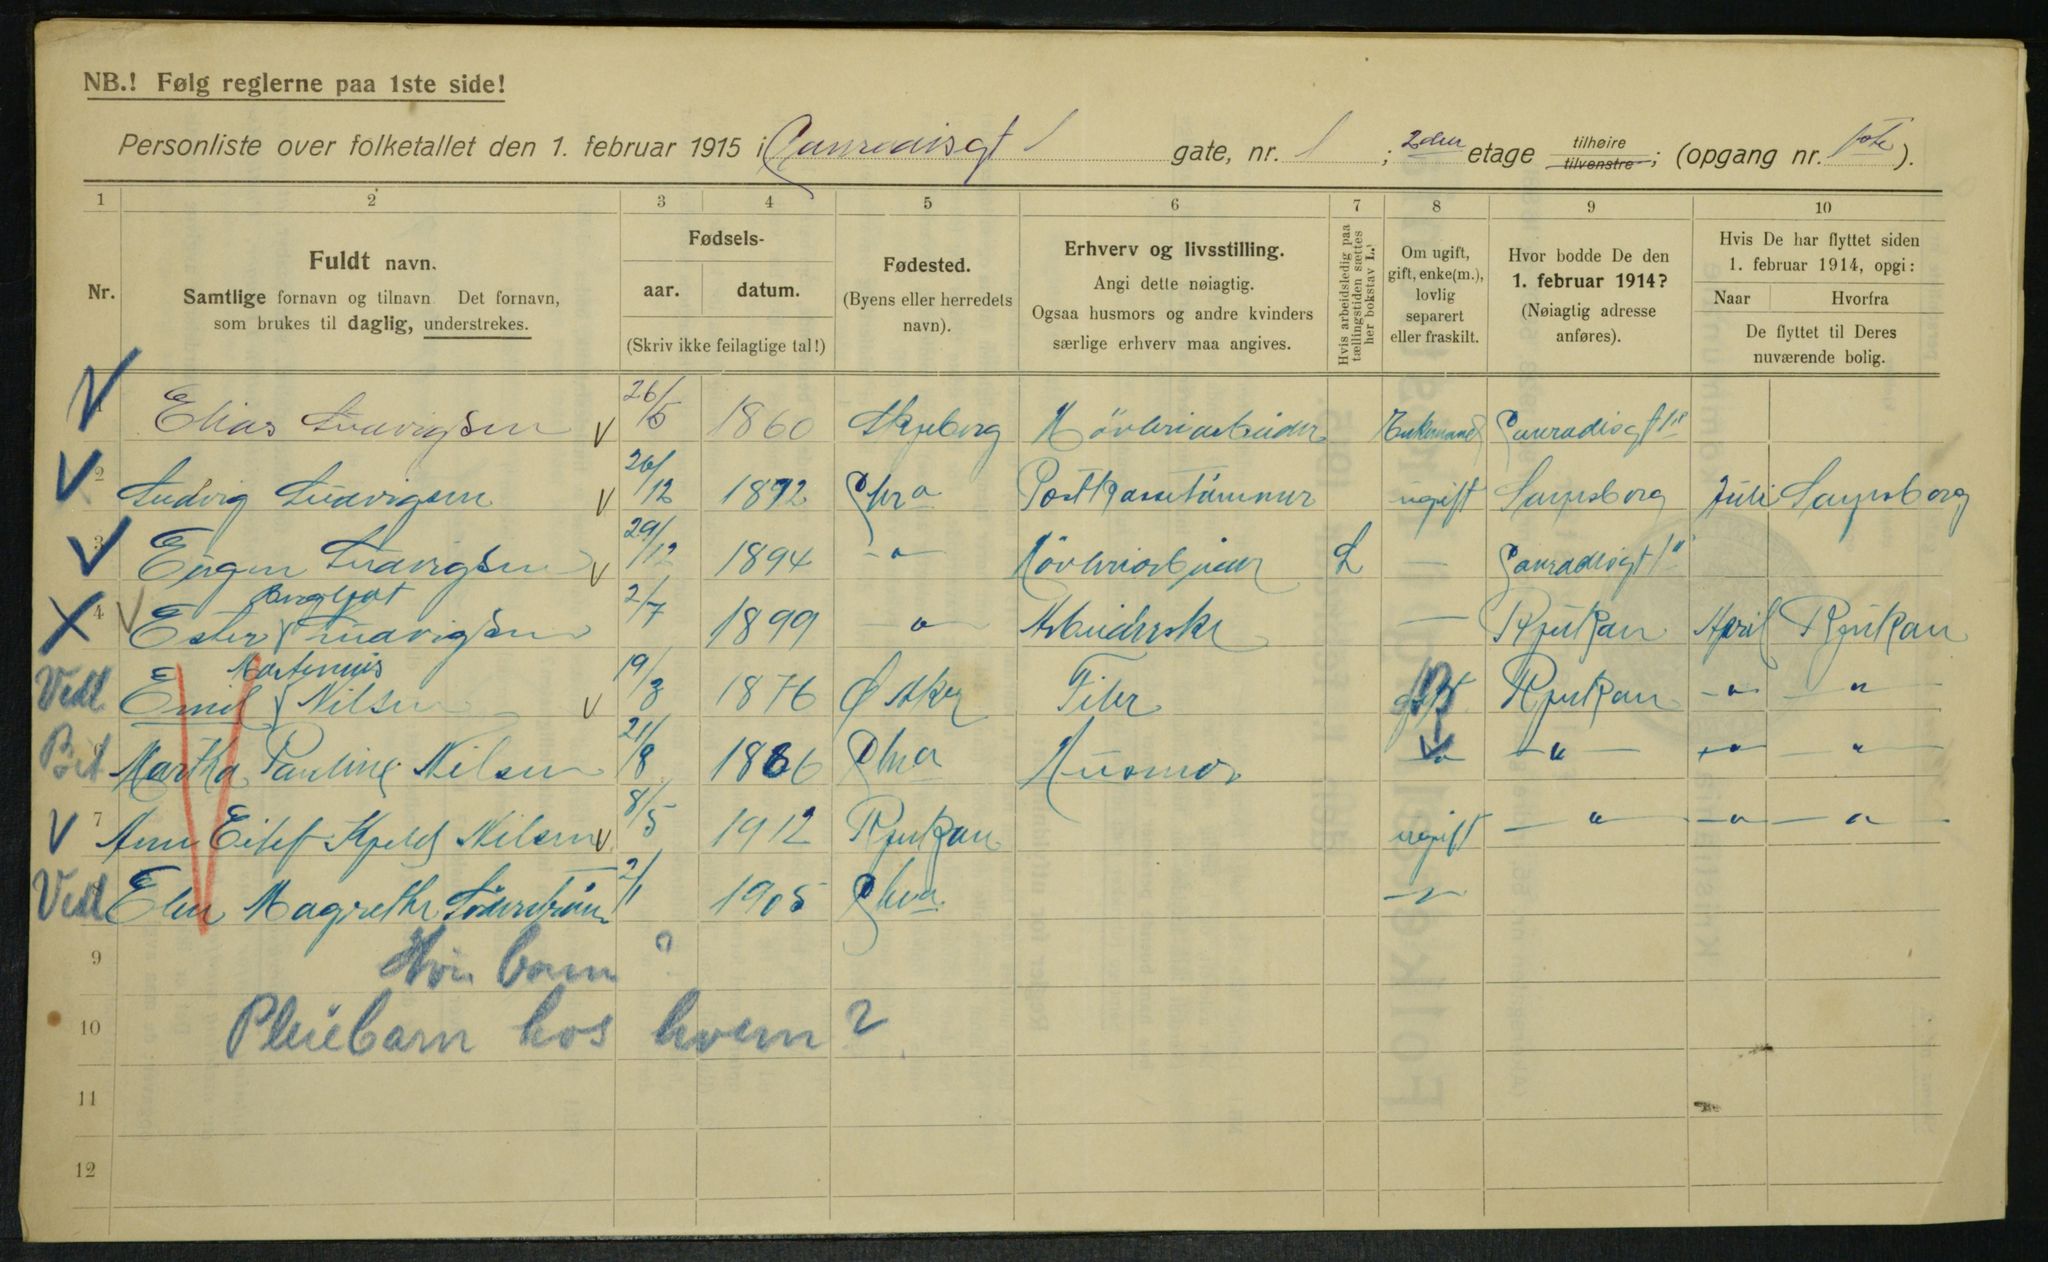 NB.! Følg reglerne paa 1ste side!
Personliste over folketallet den 1. februar 1915 i Conradisgt 1 gate, nr. 1 ; 2den etage tilhøire tilvenstre ; (opgang nr. 1ste ).
1 2 3 4 5 6 7 8 9 10
Nr.
Fuldt navn.
Samtlige fornavn og tilnavn Det fornavn,
som brukes til daglig, understrekes.
Fødsels-
aar. datum.
(Skriv ikke feilagtige tal!)
Fødested.
(Byens eller herredets
navn).
Erhverv og livsstilling.
Angi dette nøiagtig.
Ogsaa husmors og andre kvinders
særlige erhverv maa angives.
Hvis arbeidsledig paa
tællingstiden sættes
her bokstav L.
Om ugift,
gift, enke(m.),
lovlig
separert
eller fraskilt.
Hvor bodde De den
1. februar 1914?
(Nøiagtig adresse
anføres).
Hvis De har flyttet siden
1. februar 1914, opgi:
Naar Hvorfra
De flyttet til Deres
nuværende bolig.
1 Elias Ludvigsen 26/5 1860 Skjeberg Høvleriarbeider Enkemand Conradisgt 1"
2 Ludvig Ludvigsen 26/12 1892 Chra Postkassetömmer ugift Sarpsborg Juli Sarpsborg
3 Eugen Ludvigsen 29/12 1894 — " — Høvleriarbeider L — Conradisgt 1"
Bergljot
4 Ester Ludvigsen 2/7 1899 — " — Arbeiderske — Rjukan April Rjukan
Martenius
Vedl Emil Nilsen 19/3 1876 Ø Aker Filer gift Rjukan — " — — " —
Bit 6 Martha Pauline Nilsen 21/8 1866 Chra Husmor — " — — " — — " — — " —
7 Arne Eilef Kjeld Nilsen 8/5 1912 Rjukan ugift — " — — " — — " —
Vedl Elen Magrethe 2/1 1905 Chra — " —
9 barn ?
10 Pleiebarn hos hvem ?
11
12